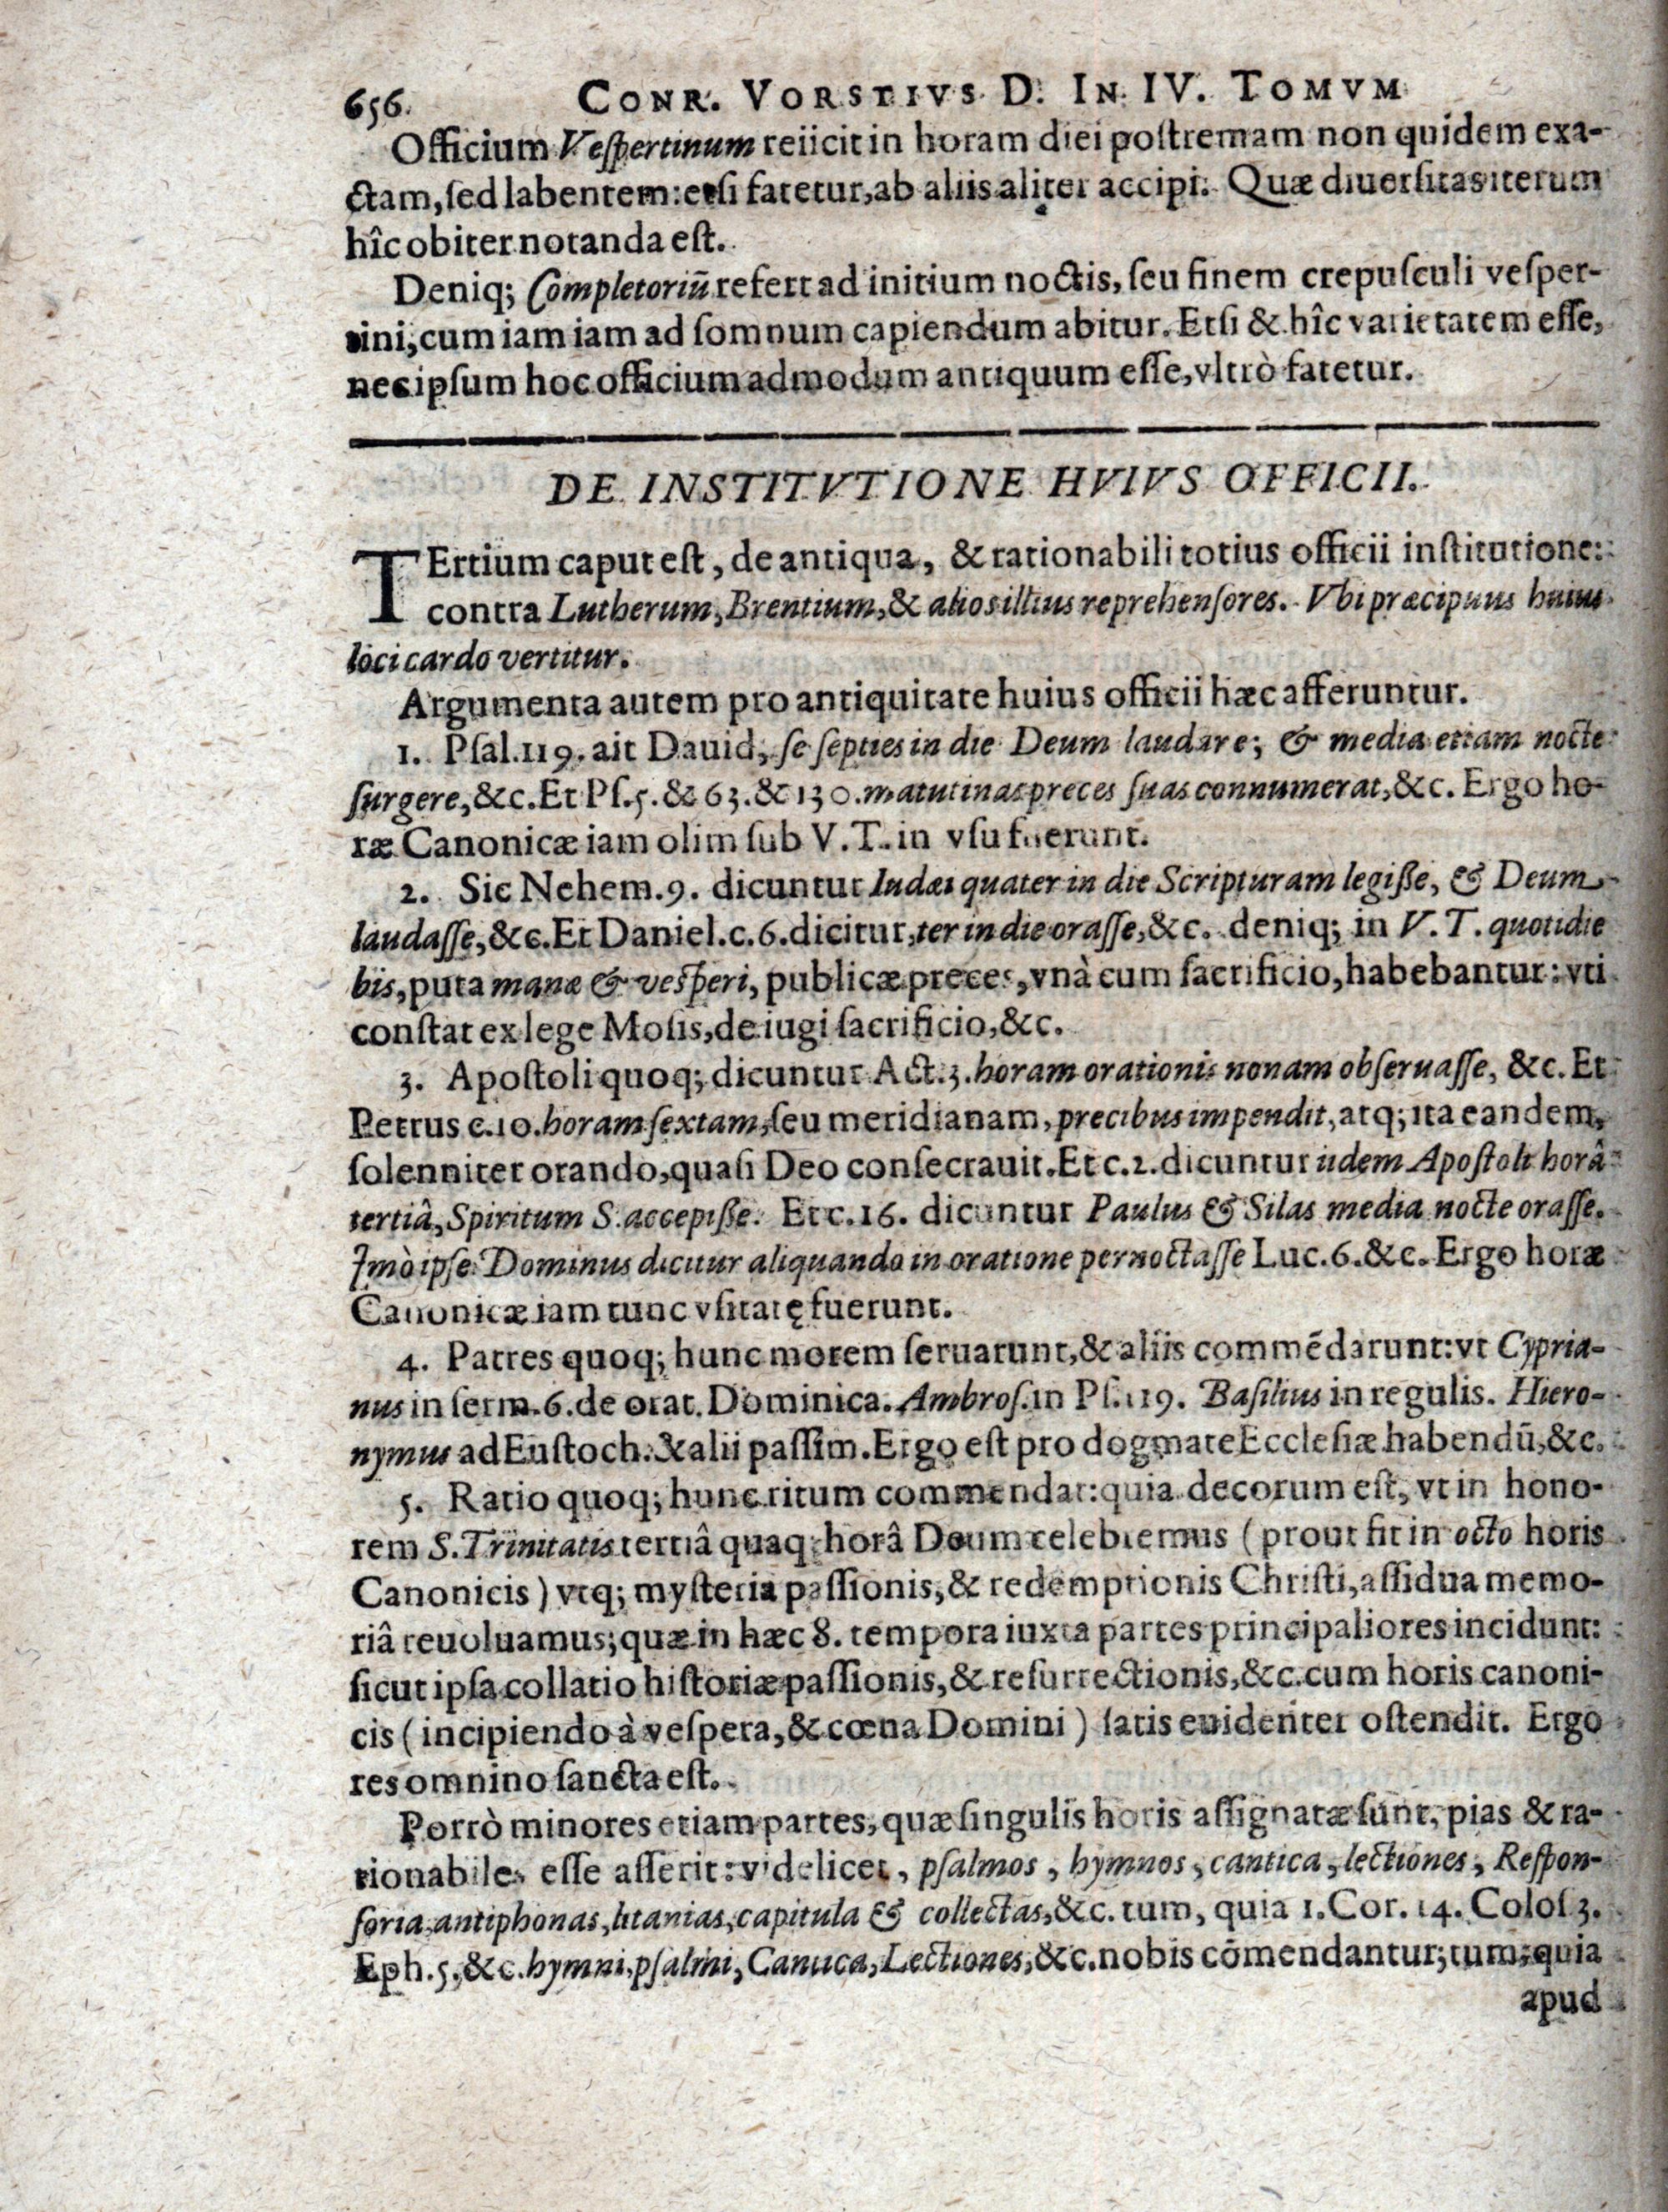 656. CONR. VORSTIVS D. IN IV. TOMVM
Officium Veſpertinum reiicit in horam diei poſtremam non quidem exa-
ctam, ſed labentem: etſi fatetur, ab aliis aliter accipi. Quæ diuerſitas iterum
hîc obiter notanda eſt.
Deniq; Completoriũ refert ad initium noctis, ſeu finem crepuſculi veſper-
tini, cum iam iam ad ſomnum capiendum abitur. Etſi & hîc varietatem eſſe,
nec ipſum hoc officium admodum antiquum eſſe, vltrò fatetur.
DE INSTITVTIONE HVIVS OFFICII.
TErtium caput eſt, de antiqua, & rationabili totius officii inſtitutione:
contra Lutherum, Brentium, & alios illius reprehenſores. Vbi præcipuus huius
loci cardo vertitur.
Argumenta autem pro antiquitate huius officii hæc afferuntur.
1. Pſal. 119. ait Dauid, ſe ſepties in die Deum laudare; & media etiam nocte
ſurgere, &c. Et Pſ. 5. & 63. & 130. matutinas preces ſuas connumerat, &c. Ergo ho-
ræ Canonicæ iam olim ſub V. T. in vſu fuerunt.
2. Sic Nehem. 9. dicuntur Iudæi quater in die Scripturam legiſſe, & Deum
laudaſſe, &c. Et Daniel. c. 6. dicitur, ter in die oraſſe, &c. deniq; in V. T. quotidie
bis, puta manæ & veſperi, publicæ preces, vnà cum ſacrificio, habebantur: vti
conſtat ex lege Moſis, de iugi ſacrificio, &c.
3. Apoſtoli quoq; dicuntur Act. 3. horam orationis nonam obſeruaſſe, &c. Et
Petrus c. 10. horam ſextam, ſeu meridianam, precibus impendit, atq; ita eandem,
ſolenniter orando, quaſi Deo conſecrauit. Et c. 2. dicuntur iidem Apoſtoli horâ
tertiâ, Spiritum S. accepiſſe. Et c. 16. dicuntur Paulus & Silas media nocte oraſſe.
Imò ipſe Dominus dicitur aliquando in oratione pernoctaſſe Luc. 6. &c. Ergo horæ
Canonicæ iam tunc vſitatę fuerunt.
4. Patres quoq; hunc morem ſeruarunt, & aliis commẽdarunt: vt Cypria-
nus in ſerm. 6. de orat. Dominica. Ambroſ. in Pſ. 119. Baſilius in regulis. Hiero-
nymus ad Euſtoch. & alii paſſim. Ergo eſt pro dogmate Eccleſiæ habendũ, &c.
5. Ratio quoq; hunc ritum commendat: quia decorum eſt, vt in hono-
rem S. Trinitatis tertiâ quaq; horâ Deum celebremus (prout fit in octo horis
Canonicis) vtq; myſteria paſſionis, & redemptionis Chriſti, aſſidua memo-
riâ reuoluamus; quæ in hæc 8. tempora iuxta partes principaliores incidunt:
ſicut ipſa collatio hiſtoriæ paſſionis, & reſurrectionis, &c. cum horis canoni-
cis (incipiendo à veſpera, & cœna Domini) ſatis euidenter oſtendit. Ergo
res omnino ſancta eſt.
Porrò minores etiam partes, quæ ſingulis horis aſſignatæ ſunt, pias & ra-
tionabiles eſſe aſſerit: videlicet, pſalmos, hymnos, cantica, lectiones, Reſpon-
ſoria, antiphonas, litanias, capitula & collectas, &c. tum, quia 1. Cor. 14. Coloſ. 3.
Eph. 5. &c. hymni, pſalmi, Cantica, Lectiones, &c. nobis cõmendantur; tum, quia
apud